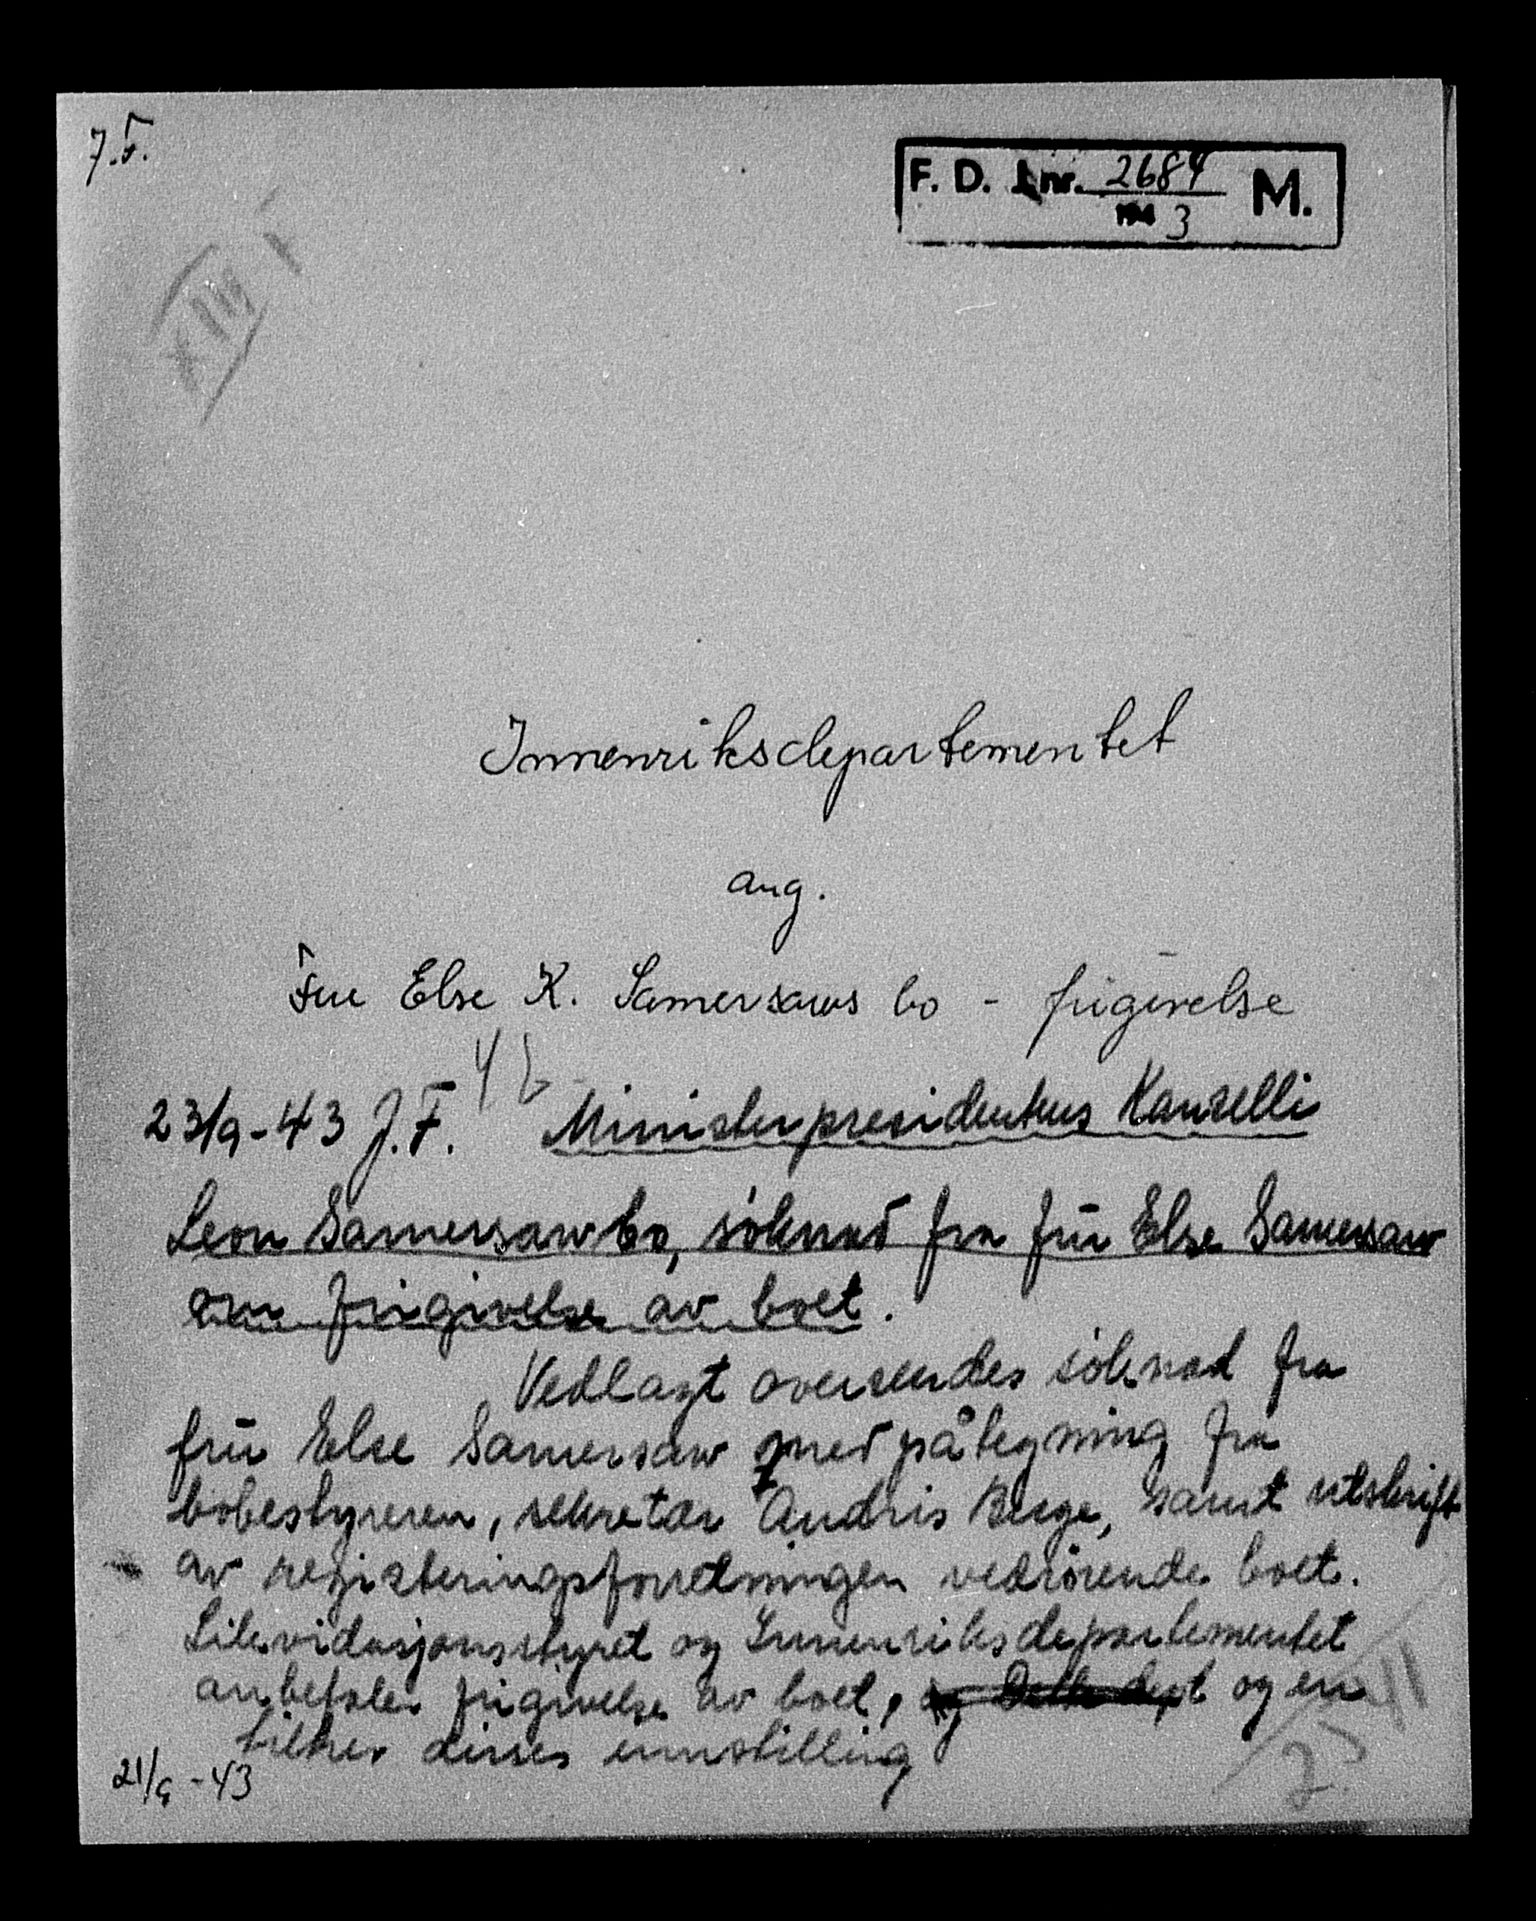 J.F.
F. D. Jnr. 2684 M.
1943
XIII
Innenriksdepartementet
ang.
Fru Else K. Samersaws bo - frigivelse
23/9-43 J.F. Ministerpresidentens Kanselli
Leon Samersaw bo, söknad fra fru Else Samersaw
om frigivelse av boet.
Vedlagt oversendes söknad fra
fru Else Samersaw med påtegning fra
bobestyreren, sekretær Andris Berge, samt utskrift
av registeringsforretningen vedrörende boet.
Likvidasjonsstyret og Innenriksdepartementet
anbefaler frigivelse av boet, og en
tiltrer disses innstilling
21/9-43